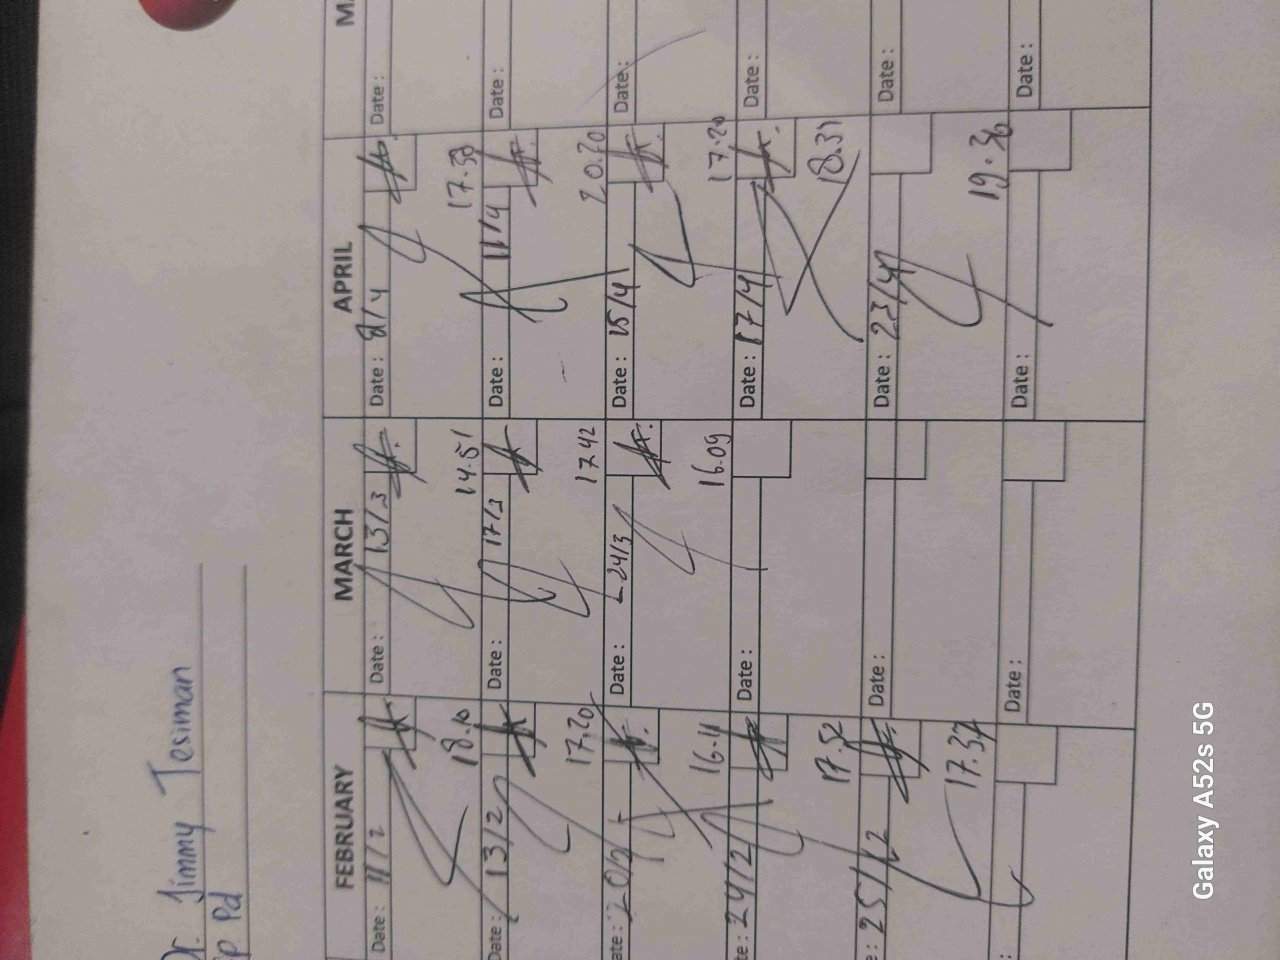 Dr. Jimmy Tesiman
Sp Pd
FEBRUARY MARCH APRIL
Date : 11/2 Date : 13/3 Date : 8/4 Date :
18.10 14.51 17.33
Date : 13/2 Date : 17/3 Date : 11/4 Date :
17.20 17.42 20.20
ate : 20/2 Date : 24/3 Date : 15/4 Date :
16.11 16.09 17.20
te : 24/2 Date : Date : 17/4 Date :
17.52 18.31
e : 25/2 Date : Date : 23/4 Date :
17.37 19.30
: Date : Date : Date :
Galaxy A52s 5G